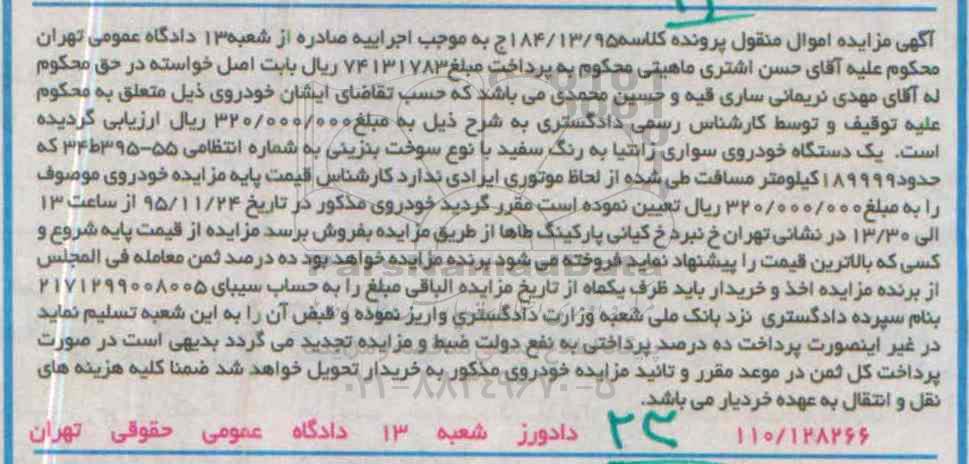 آگهی مزایده اموال منقول پرونده کلاسه۱۸۴/۱۳/۹۵ج به موجب اجراییه صادره از شعبه۱۳ دادگاه عمومی تهران
محکوم علیه آقای حسن اشتری ماهینی محکوم به پرداخت مبلغ۷۴۱۳۱۷۸۳ ریال بابت اصل خواسته در حق محکوم
له آقای مهدی نریمانی ساری قیه و حسین محمدی می باشد که حسب تقاضای ایشان خودروی ذیل متعلق به محکوم
علیه توقیف و توسط کارشناس رسمی دادگستری به شرح ذیل به مبلغ۳۲۰/۰۰۰/۰۰۰ ریال ارزیابی گردیده
است. یک دستگاه خودروی سواری زانتیا به رنگ سفید با نوع سوخت بنزینی به شماره انتظامی ۵۵-۳۹۵ط۳۴ که
حدود۱۸۹۹۹۹کیلومتر مسافت طی شده از لحاظ موتوری ایرادی ندارد کارشناس قیمت پایه مزایده خودروی موصوف
را به مبلغ۳۲۰/۰۰۰/۰۰۰ ریال تعیین نموده است مقرر گردید خودروی مذکور در تاریخ ۹۵/۱۱/۲۴ از ساعت ۱۳
الی ۱۳/۳۰ در نشانی تهران خ نبرد خ کیانی پارکینگ طاها از طریق مزایده بفروش برسد مزایده از قیمت پایه شروع و
کسی که بالاترین قیمت را پیشنهاد نماید فروخته می شود برنده مزایده خواهد بود ده درصد ثمن معامله فی المجلس
از برنده مزایده اخذ و خریدار باید ظرف یکماه از تاریخ مزایده الباقی مبلغ را به حساب سیبای ۲۱۷۱۲۹۹۰۰۸۰۰۵
بنام سپرده دادگستری نزد بانک ملی شعبه وزارت دادگستری واریز نموده و قبض آن را به این شعبه تسلیم نماید
در غیر اینصورت پرداخت ده درصد پرداختی به نفع دولت ضبط و مزایده تجدید می گردد بدیهی است در صورت
پرداخت کل ثمن در موعد مقرر و تائید مزایده خودروی مذکور به خریدار تحویل خواهد شد ضمنا کلیه هزینه های
نقل و انتقال به عهده خردیار می باشد.
۱۱۰/۱۲۸۲۶۶ ۲۳ دادورز شعبه ۱۳ دادگاه عمومی حقوقی تهران
ParsNamadData
۰۲۱-۸۸۳۴۹۶۷۰-۵